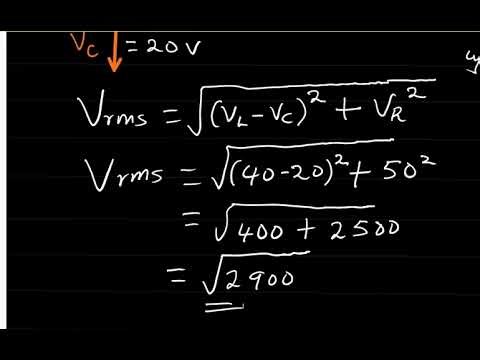 V_C ↓ = 20 V
V_rms = √((V_L - V_C)² + V_R²)
V_rms = √((40-20)² + 50²)
= √(400 + 2500)
= √2900